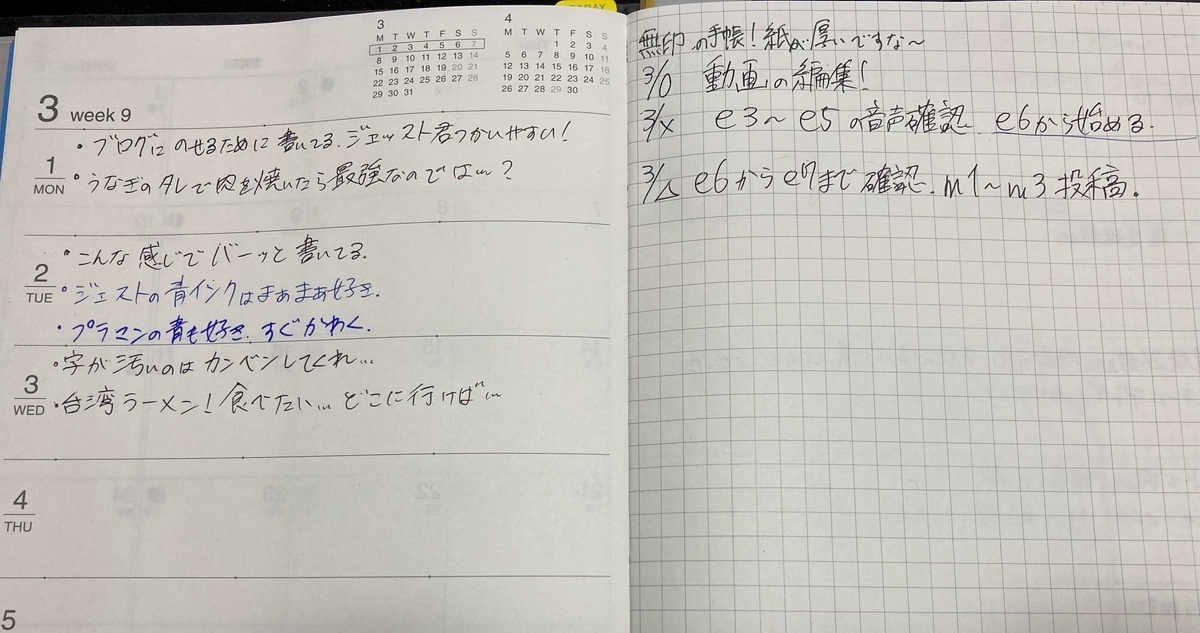 TODAY
3
M T W T F S S
1 2 3 4 5 6 7
8 9 10 11 12 13 14
15 16 17 18 19 20 21
22 23 24 25 26 27 28
29 30 31
4
M T W T F S S
1 2 3 4
5 6 7 8 9 10 11
12 13 14 15 16 17 18
19 20 21 22 23 24 25
26 27 28 29 30
3 week 9
1
MON
・ブログにのせるために書いてる。ジェッスト君つかいやすい!
・うなぎのタレで肉を焼いたら最強なのでは…?
2
TUE
・こんな感じでバーッと書いてる。
・ジェストの青インクはまぁまぁ好き。
・プラマンの青も好き。すぐかわく。
3
WED
・字が汚いのはカンベンしてくれ…
・台湾ラーメン!食べたい…どこに行けば…
4
THU
5
無印の手帳!紙が厚いですな〜
3/○ 動画の編集!
3/× e3〜e5の音声確認 e6から始める.
3/△ e6からe7まで確認.m1〜m3投稿.